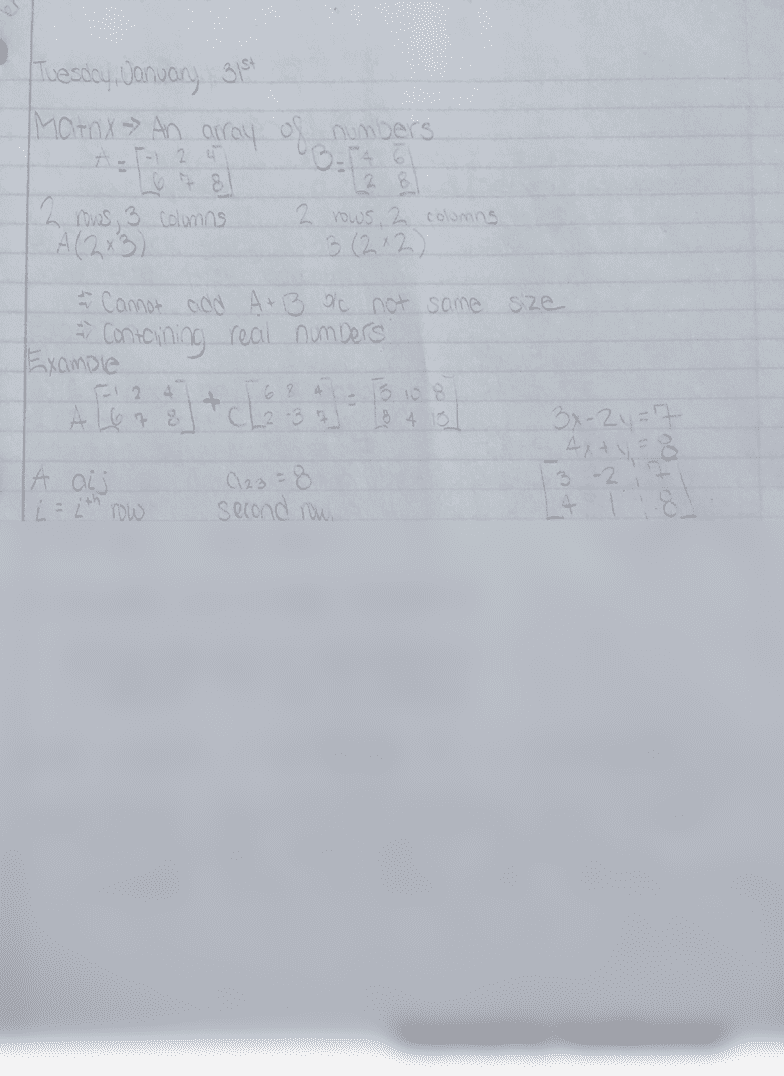 Tuesday, January 31st
Matrix → An array of numbers
A = [-1 2 4
6 7 8]
B = [4 6
2 8]
2 rows, 3 columns
2 rows, 2 columns
A(2×3)
B(2×2)
⇒ Cannot add A+B b/c not same size
⇒ Containing real numbers
Example
A [-1 2 4
6 7 8] + C [6 8 4
2 -3 7] = [5 10 8
8 4 15]
3x-2y=7
4x+y=8
[3 -2 ¦ 7
4 1 ¦ 8]
A aij
a23 = 8
i = ith row
second row